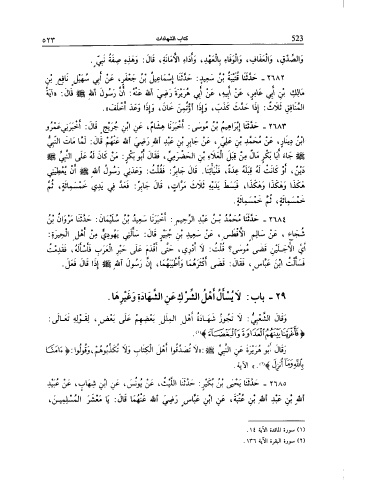 ٥٢٣ كتاب الشهادات 523
وَالصِّدْقِ، وَالعَفَافِ، وَالوَفَاءِ بِالعَهْدِ، وَأَدَاءِ الأَمَانَةِ، قَالَ: وَهَذِهِ صِفَةُ نَبِيٍّ.
٢٦٨٢ - حَدَّثَنَا قُتَيْبَةُ بْنُ سَعِيدٍ: حَدَّثَنَا إِسْمَاعِيلُ بْنُ جَعْفَرٍ، عَنْ أَبِي سُهَيْلٍ نَافِعِ بْنِ
مَالِكِ بْنِ أَبِي عَامِرٍ، عَنْ أَبِيهِ، عَنْ أَبِي هُرَيْرَةَ رَضِيَ اللهُ عَنْهُ: أَنَّ رَسُولَ اللهِ ﷺ قَالَ: «آيَةُ
المُنَافِقِ ثَلَاثٌ: إِذَا حَدَّثَ كَذَبَ، وَإِذَا اؤْتُمِنَ خَانَ، وَإِذَا وَعَدَ أَخْلَفَ».
٢٦٨٣ - حَدَّثَنَا إِبْرَاهِيمُ بْنُ مُوسَى: أَخْبَرَنَا هِشَامٌ، عَنِ ابْنِ جُرَيْجٍ قَالَ: أَخْبَرَنِي عَمْرُو
ابْنُ دِينَارٍ، عَنْ مُحَمَّدِ بْنِ عَلِيٍّ، عَنْ جَابِرِ بْنِ عَبْدِ اللهِ رَضِيَ اللهُ عَنْهُمْ قَالَ: لَمَّا مَاتَ النَّبِيُّ
ﷺ جَاءَ أَبَا بَكْرٍ مَالٌ مِنْ قِبَلِ العَلَاءِ بْنِ الحَضْرَمِيِّ، فَقَالَ أَبُو بَكْرٍ: مَنْ كَانَ لَهُ عَلَى النَّبِيِّ ﷺ
دَيْنٌ، أَوْ كَانَتْ لَهُ قِبَلَهُ عِدَةٌ، فَلْيَأْتِنَا. قَالَ جَابِرٌ: فَقُلْتُ: وَعَدَنِي رَسُولُ اللهِ ﷺ أَنْ يُعْطِيَنِي
هَكَذَا وَهَكَذَا وَهَكَذَا، فَبَسَطَ يَدَيْهِ ثَلَاثَ مَرَّاتٍ، قَالَ جَابِرٌ: فَعَدَّ فِي يَدِي خَمْسَمِائَةٍ، ثُمَّ
خَمْسَمِائَةٍ، ثُمَّ خَمْسَمِائَةٍ.
٢٦٨٤ - حَدَّثَنَا مُحَمَّدُ بْنُ عَبْدِ الرَّحِيمِ: أَخْبَرَنَا سَعِيدُ بْنُ سُلَيْمَانَ: حَدَّثَنَا مَرْوَانُ بْنُ
شُجَاعٍ، عَنْ سَالِمٍ الأَفْطَسِ، عَنْ سَعِيدِ بْنِ جُبَيْرٍ قَالَ: سَأَلَنِي يَهُودِيٌّ مِنْ أَهْلِ الحِيرَةِ:
أَيَّ الأَجَلَيْنِ قَضَى مُوسَى؟ قُلْتُ: لَا أَدْرِي، حَتَّى أَقْدَمَ عَلَى حَبْرِ العَرَبِ فَأَسْأَلَهُ، فَقَدِمْتُ
فَسَأَلْتُ ابْنَ عَبَّاسٍ، فَقَالَ: قَضَى أَكْثَرَهُمَا وَأَطْيَبَهُمَا، إِنَّ رَسُولَ اللهِ ﷺ إِذَا قَالَ فَعَلَ.
٢٩ - باب: لَا يُسْأَلُ أَهْلُ الشِّرْكِ عَنِ الشَّهَادَةِ وَغَيْرِهَا.
وَقَالَ الشَّعْبِيُّ: لَا تَجُوزُ شَهَادَةُ أَهْلِ المِلَلِ بَعْضِهِمْ عَلَى بَعْضٍ، لِقَوْلِهِ تَعَالَى:
﴿فَأَغْرَيْنَا بَيْنَهُمُ الْعَدَاوَةَ وَالْبَغْضَاءَ﴾(١).
وَقَالَ أَبُو هُرَيْرَةَ عَنِ النَّبِيِّ ﷺ: «لَا تُصَدِّقُوا أَهْلَ الكِتَابِ وَلَا تُكَذِّبُوهُمْ، وَقُولُوا: ﴿ءَامَنَّا
بِاللهِ وَمَا أُنْزِلَ﴾(٢)». الآيَةَ.
٢٦٨٥ - حَدَّثَنَا يَحْيَى بْنُ بُكَيْرٍ: حَدَّثَنَا اللَّيْثُ، عَنْ يُونُسَ، عَنِ ابْنِ شِهَابٍ، عَنْ عُبَيْدِ
اللهِ بْنِ عَبْدِ اللهِ بْنِ عُتْبَةَ، عَنِ ابْنِ عَبَّاسٍ رَضِيَ اللهُ عَنْهُمَا قَالَ: يَا مَعْشَرَ المُسْلِمِينَ،
(١) سورة المائدة الآية ١٤.
(٢) سورة البقرة الآية ١٣٦.